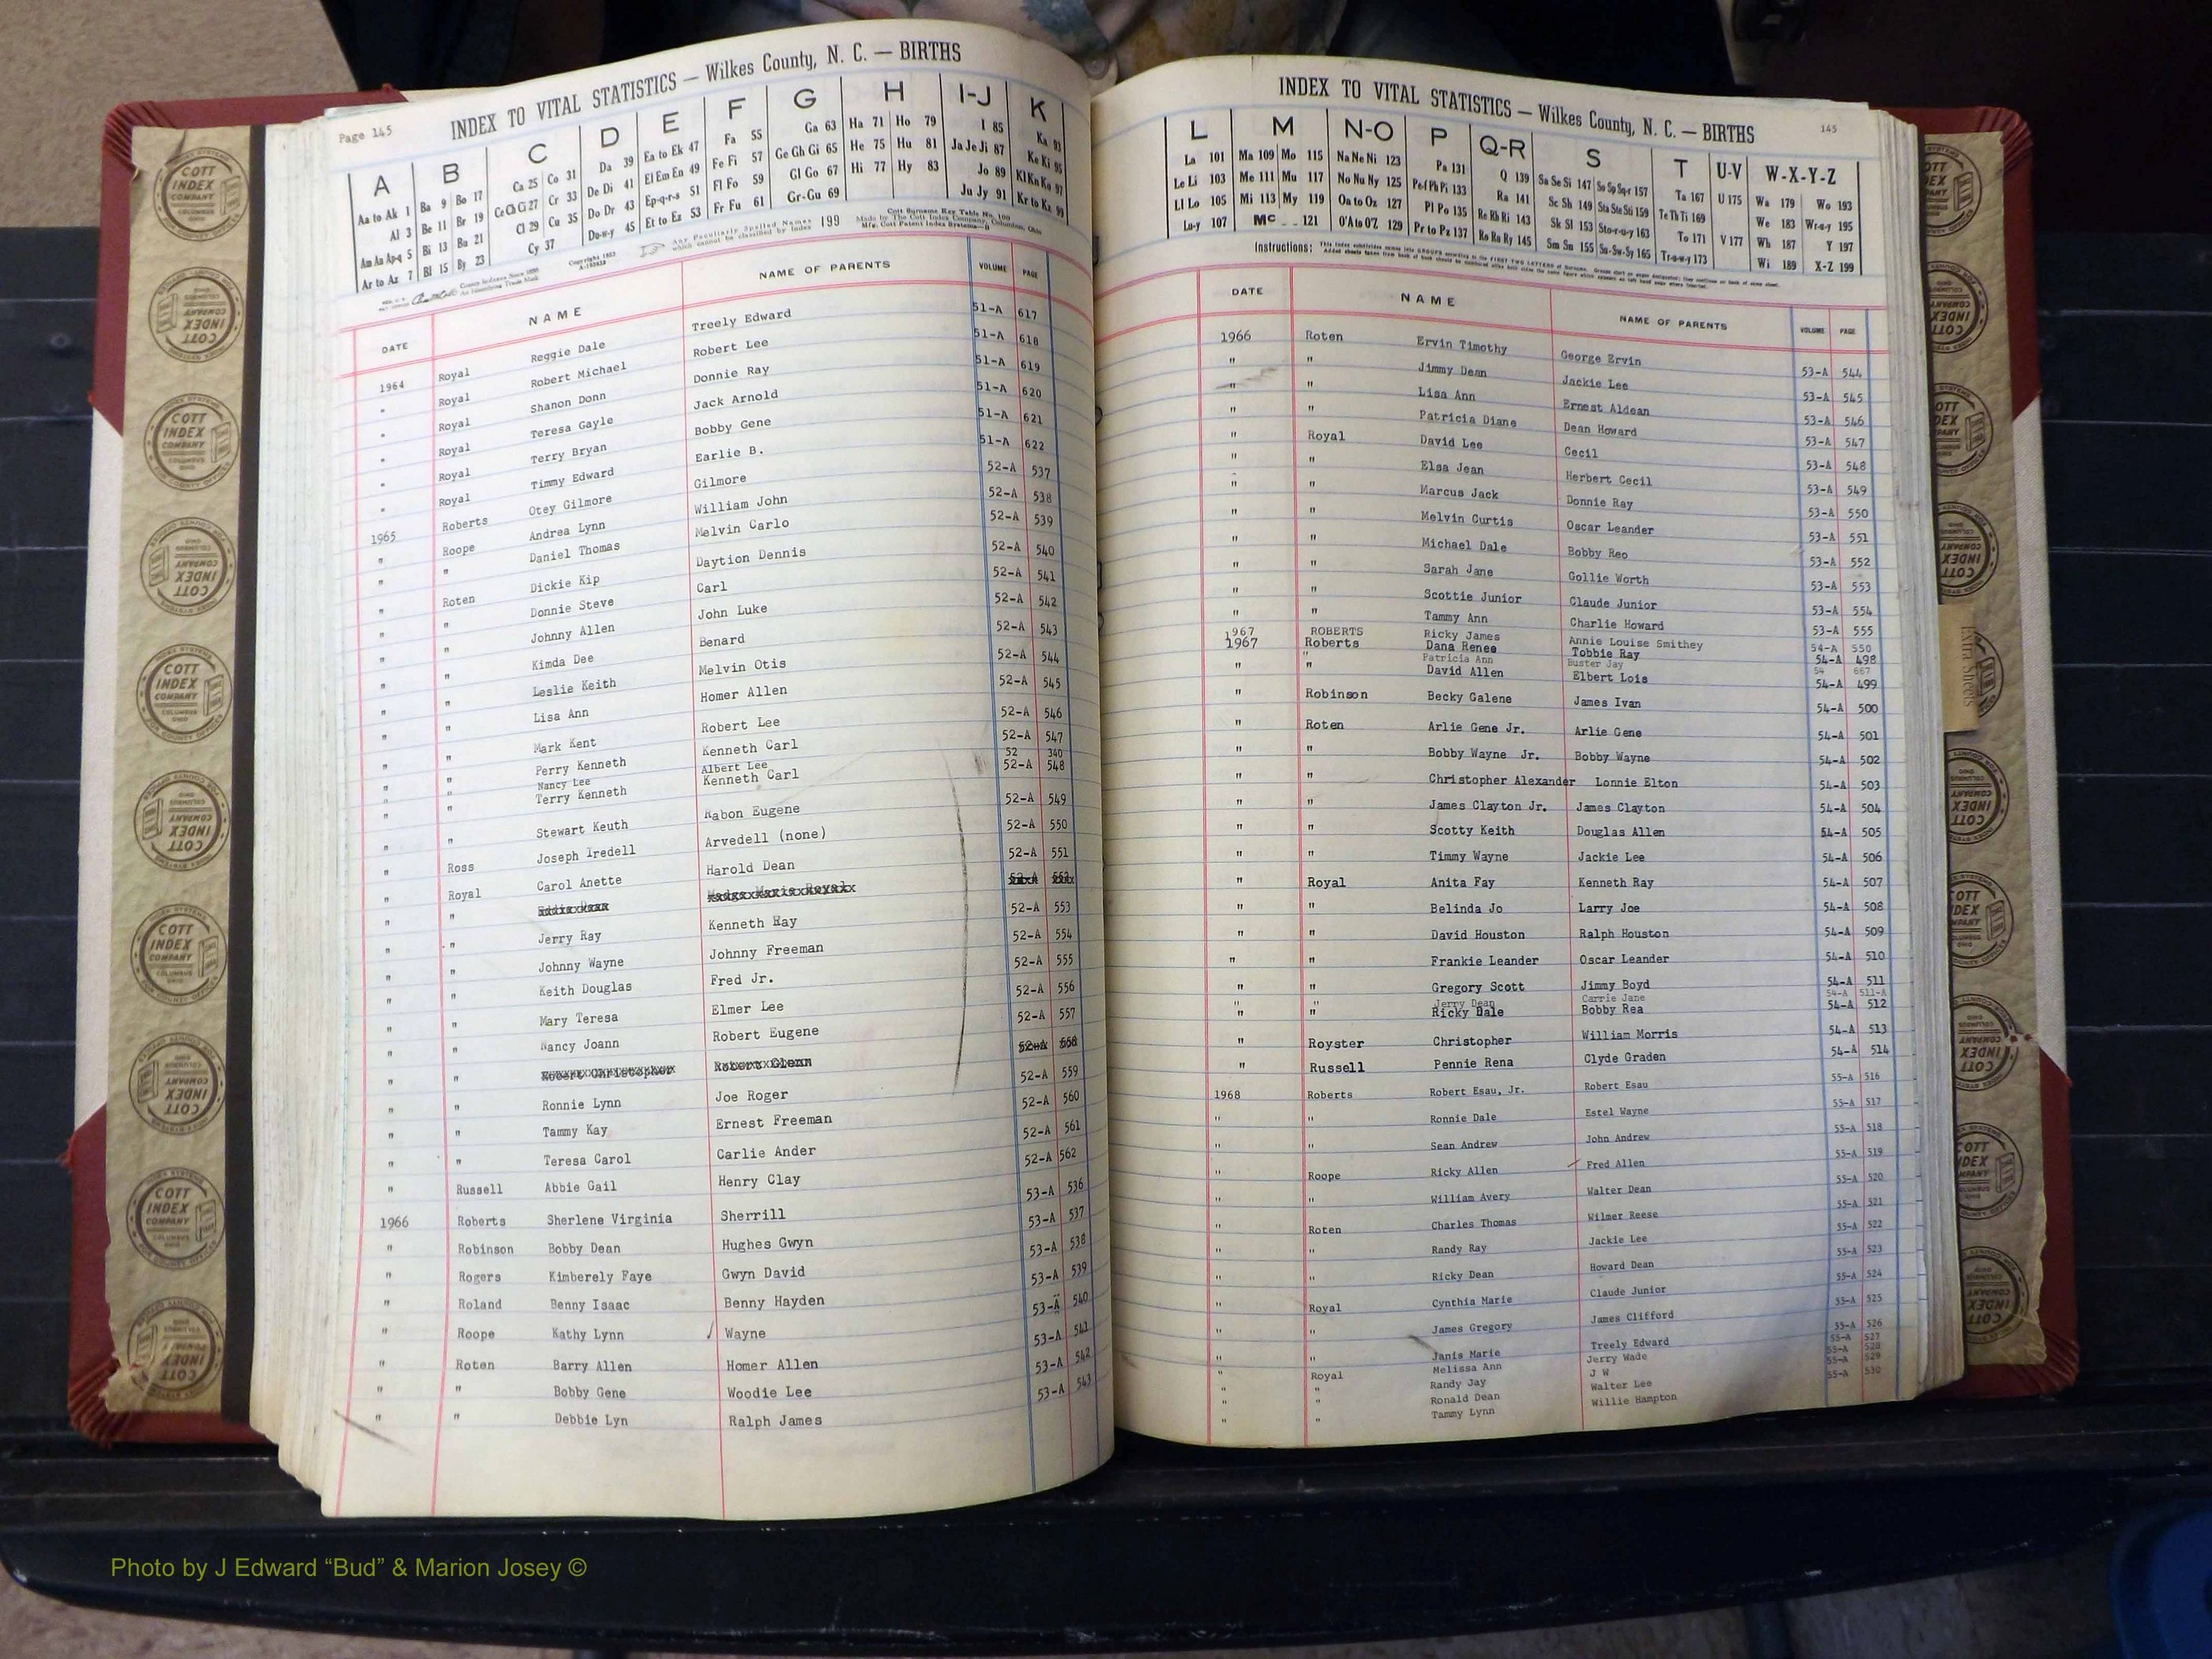 Page 145
INDEX TO VITAL STATISTICS — Wilkes County, N. C. — BIRTHS
A B C D E F G H I-J K
Aa to Ak 1 Ba 9 Bo 17 Ca 25 Co 31 Da 39 Ea to Ek 47 Fa 55 Ga 63 Ha 71 Ho 79 I 85 Ka 93
Al 3 Be 11 Br 19 Ce Ch Ci 27 Cr 33 De Di 41 El Em En 49 Fe Fi 57 Ge Gh Gi 65 He 75 Hu 81 Ja Je Ji 87 Ke Ki 95
Am An Ap-q 5 Bi 13 Bu 21 Cl 29 Cu 35 Do Dr 43 Ep-q-r-s 51 Fl Fo 59 Gl Go 67 Hi 77 Hy 83 Jo 89 Kl Kn Ko 97
Ar to Az 7 Bl 15 By 23 Cy 37 Du-w-y 45 Et to Ez 53 Fr Fu 61 Gr-Gu 69 Ju Jy 91 Kr to Kz 99
Any Peculiarly Spelled Names which cannot be classified by Index 199
DATE NAME NAME OF PARENTS VOLUME PAGE
1964 Royal Reggie Dale Treely Edward 51-A 617
" Royal Robert Michael Robert Lee 51-A 618
" Royal Shanon Donn Donnie Ray 51-A 619
" Royal Teresa Gayle Jack Arnold 51-A 620
" Royal Terry Bryan Bobby Gene 51-A 621
" Royal Timmy Edward Earlie B. 51-A 622
1965 Roberts Otey Gilmore Gilmore 52-A 537
" Roope Andrea Lynn William John 52-A 538
" " Daniel Thomas Melvin Carlo 52-A 539
" Roten Dickie Kip Daytion Dennis 52-A 540
" " Donnie Steve Carl 52-A 541
" " Johnny Allen John Luke 52-A 542
" " Kimda Dee Benard 52-A 543
" " Leslie Keith Melvin Otis 52-A 544
" " Lisa Ann Homer Allen 52-A 545
" " Mark Kent Robert Lee 52-A 546
" " Perry Kenneth Kenneth Carl 52-A 547
" " Nancy Lee Albert Lee 52 340
" " Terry Kenneth Kenneth Carl 52-A 548
" " Stewart Keuth Rabon Eugene 52-A 549
" Ross Joseph Iredell Arvedell (none) 52-A 550
" Royal Carol Anette Harold Dean 52-A 551
" "
" " Jerry Ray Kenneth Ray 52-A 553
" " Johnny Wayne Johnny Freeman 52-A 554
" " Keith Douglas Fred Jr. 52-A 555
" " Mary Teresa Elmer Lee 52-A 556
" " Nancy Joann Robert Eugene 52-A 557
" " Robert Christopher Robert Glenn 52-A 558
" " Ronnie Lynn Joe Roger 52-A 559
" " Tammy Kay Ernest Freeman 52-A 560
" " Teresa Carol Carlie Ander 52-A 561
" Russell Abbie Gail Henry Clay 52-A 562
1966 Roberts Sherlene Virginia Sherrill 53-A 536
" Robinson Bobby Dean Hughes Gwyn 53-A 537
" Rogers Kimberely Faye Gwyn David 53-A 538
" Roland Benny Isaac Benny Hayden 53-A 539
" Roope Kathy Lynn Wayne 53-A 540
" Roten Barry Allen Homer Allen 53-A 541
" " Bobby Gene Woodie Lee 53-A 542
" " Debbie Lyn Ralph James 53-A 543
INDEX TO VITAL STATISTICS — Wilkes County, N. C. — BIRTHS
145
L M N-O P Q-R S T U-V W-X-Y-Z
La 101 Ma 109 Mo 115 Na Ne Ni 123 Pa 131 Q 139 Sa Se Si 147 So Sp Sq-r 157 Ta 167 U 175 Wa 179 Wo 193
Le Li 103 Me 111 Mu 117 No Nu Ny 125 Pe-f Ph Pi 133 Ra 141 Sc Sh 149 Sta Ste Sti 159 Te Th Ti 169 We 183 Wr-u-y 195
Ll Lo 105 Mi 113 My 119 Oa to Oz 127 Pl Po 135 Re Rh Ri 143 Sk Sl 153 Sto-r-u-y 163 To 171 V 177 Wh 187 Y 197
Lu-y 107 Mc 121 O'A to O'Z 129 Pr to Pz 137 Ro Ru Ry 145 Sm Sn 155 Su-Sw-Sy 165 Tr-u-w-y 173 Wi 189 X-Z 199
Instructions:
DATE NAME NAME OF PARENTS VOLUME PAGE
1966 Roten Ervin Timothy George Ervin 53-A 544
" " Jimmy Dean Jackie Lee 53-A 545
" " Lisa Ann Ernest Aldean 53-A 546
" " Patricia Diane Dean Howard 53-A 547
" Royal David Lee Cecil 53-A 548
" " Elsa Jean Herbert Cecil 53-A 549
" " Marcus Jack Donnie Ray 53-A 550
" " Melvin Curtis Oscar Leander 53-A 551
" " Michael Dale Bobby Reo 53-A 552
" " Sarah Jane Gollie Worth 53-A 553
" " Scottie Junior Claude Junior 53-A 554
" " Tammy Ann Charlie Howard 53-A 555
1967 ROBERTS Ricky James Annie Louise Smithey 54-A 550
1967 Roberts Dana Renee Tobbie Ray 54-A 498
" Patricia Ann Buster Jay 54 667
" " David Allen Elbert Lois 54-A 499
" Robinson Becky Galene James Ivan 54-A 500
" Roten Arlie Gene Jr. Arlie Gene 54-A 501
" " Bobby Wayne Jr. Bobby Wayne 54-A 502
" " Christopher Alexander Lonnie Elton 54-A 503
" " James Clayton Jr. James Clayton 54-A 504
" " Scotty Keith Douglas Allen 54-A 505
" " Timmy Wayne Jackie Lee 54-A 506
" Royal Anita Fay Kenneth Ray 54-A 507
" " Belinda Jo Larry Joe 54-A 508
" " David Houston Ralph Houston 54-A 509
" " Frankie Leander Oscar Leander 54-A 510
" " Gregory Scott Jimmy Boyd 54-A 511
" " Jerry Dean Carrie Jane 54-A 511-A
" " Ricky Dale Bobby Rea 54-A 512
" Royster Christopher William Morris 54-A 513
" Russell Pennie Rena Clyde Graden 54-A 514
1968 Roberts Robert Esau, Jr. Robert Esau 55-A 516
" " Ronnie Dale Estel Wayne 55-A 517
" " Sean Andrew John Andrew 55-A 518
" Roope Ricky Allen Fred Allen 55-A 519
" " William Avery Walter Dean 55-A 520
" Roten Charles Thomas Wilmer Reese 55-A 521
" " Randy Ray Jackie Lee 55-A 522
" " Ricky Dean Howard Dean 55-A 523
" Royal Cynthia Marie Claude Junior 55-A 524
" " James Gregory James Clifford 55-A 525
" " Janis Marie Treely Edward 55-A 526
" Royal Melissa Ann Jerry Wade 55-A 527
" " Randy Jay J W 55-A 528
" " Ronald Dean Walter Lee 55-A 529
" " Tammy Lynn Willie Hampton 55-A 530
Extra Sheets
COTT INDEX COMPANY COLUMBUS OHIO
Photo by J Edward “Bud” & Marion Josey ©